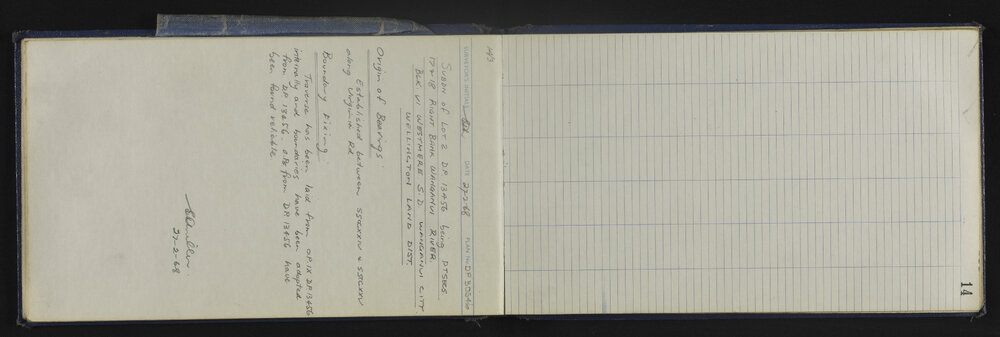 14/3
SURVEYOR'S INITIALS DATE 27-2-68 PLAN No. DP
SUBDN of LOT 2 DP 13456 being PTSECS
17 & 18 RIGHT BANK WANGANUI RIVER.
BLK VI WESTMERE S.D. WANGANUI CITY
WELLINGTON LAND DIST.
Origin of Bearings
Established between SSCXXIV & SSCXXV
along Virginia Rd.
Boundary Fixing
Traverse has been laid from OP IX DP 13456
internally and boundaries have been adopted
from DP 13456. OPs from DP 13456 have
been found reliable.
27-2-68
14